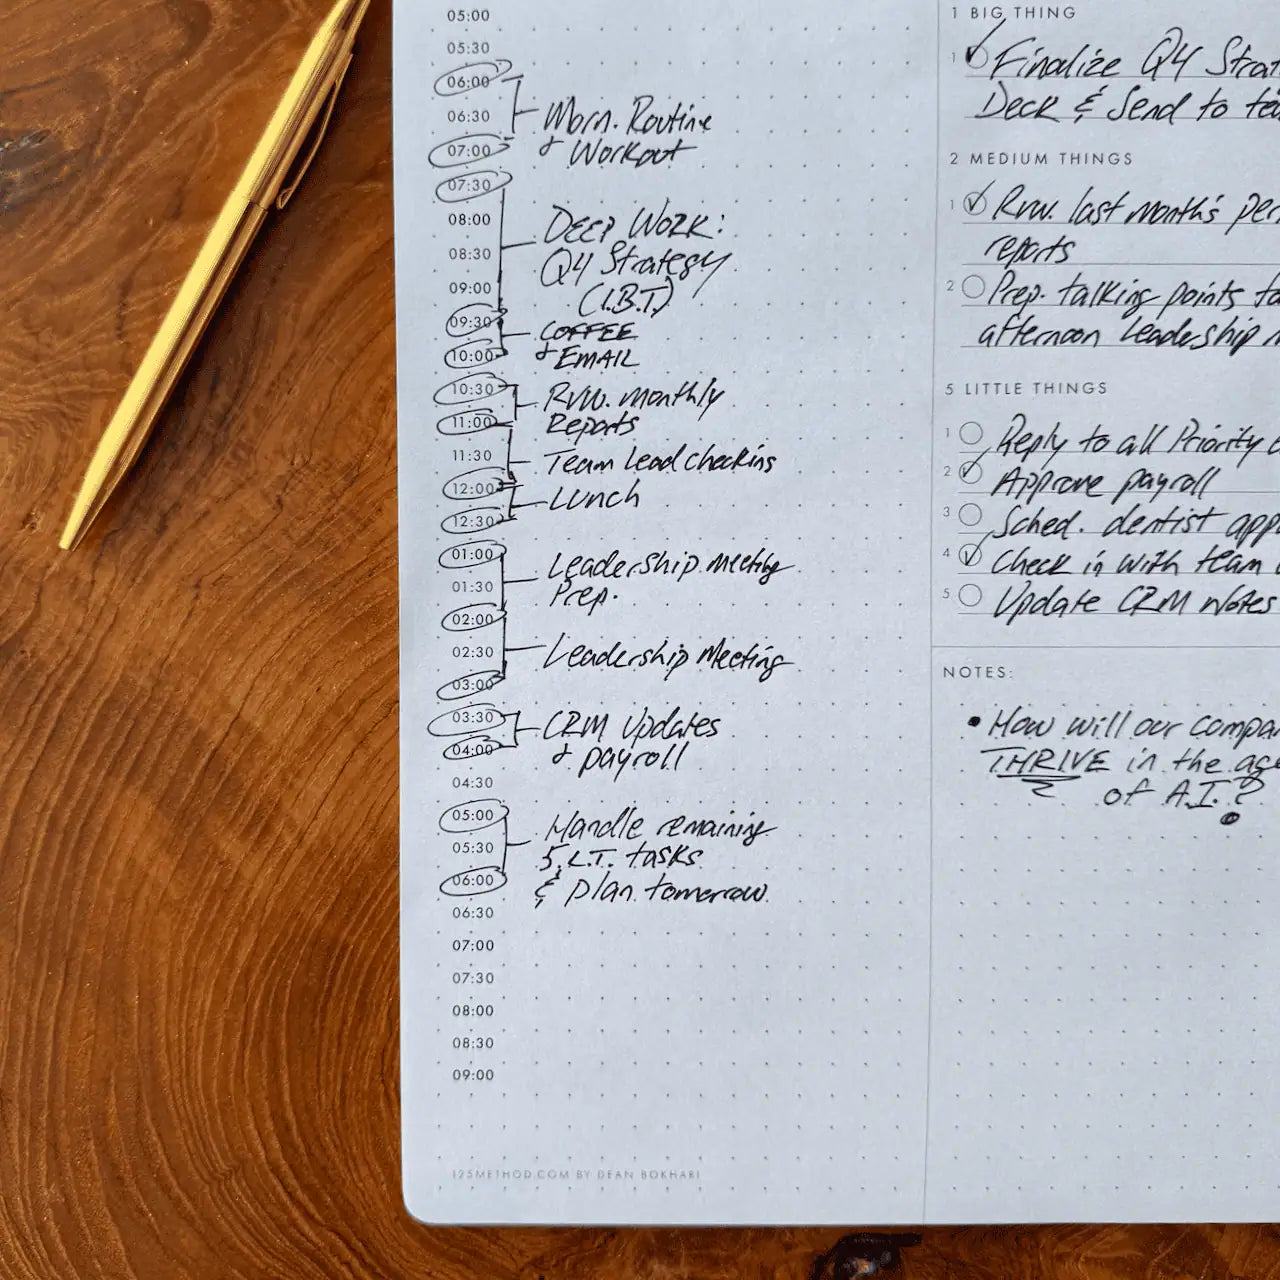 05:00
05:30
06:00
06:30
07:00
Morn. Routine
& Workout
07:30
08:00
08:30
09:00
DEEP WORK:
Q4 Strategy
(1.B.T.)
09:30
10:00
COFFEE
& EMAIL
10:30
11:00
Rvw. monthly
Reports
11:30
Team Lead checkins
12:00
12:30
Lunch
01:00
01:30
Leadership Meeting
Prep.
02:00
02:30
Leadership Meeting
03:00
03:30
04:00
CRM Updates
& payroll
04:30
05:00
05:30
06:00
Handle remaining
5 L.T. tasks
& plan tomorrow
06:30
07:00
07:30
08:00
08:30
09:00
125METHOD.COM BY DEAN BOKHARI
1 BIG THING
1 Finalize Q4 Strat
Deck & Send to
2 MEDIUM THINGS
1 Rvw. last month's
reports
2 Prep. talking points
afternoon Leadership
5 LITTLE THINGS
1 Reply to all Priority
2 Approve payroll
3 Sched. dentist
4 Check in with team
5 Update CRM Notes
NOTES:
• How will our
THRIVE in the age
of A.I.?